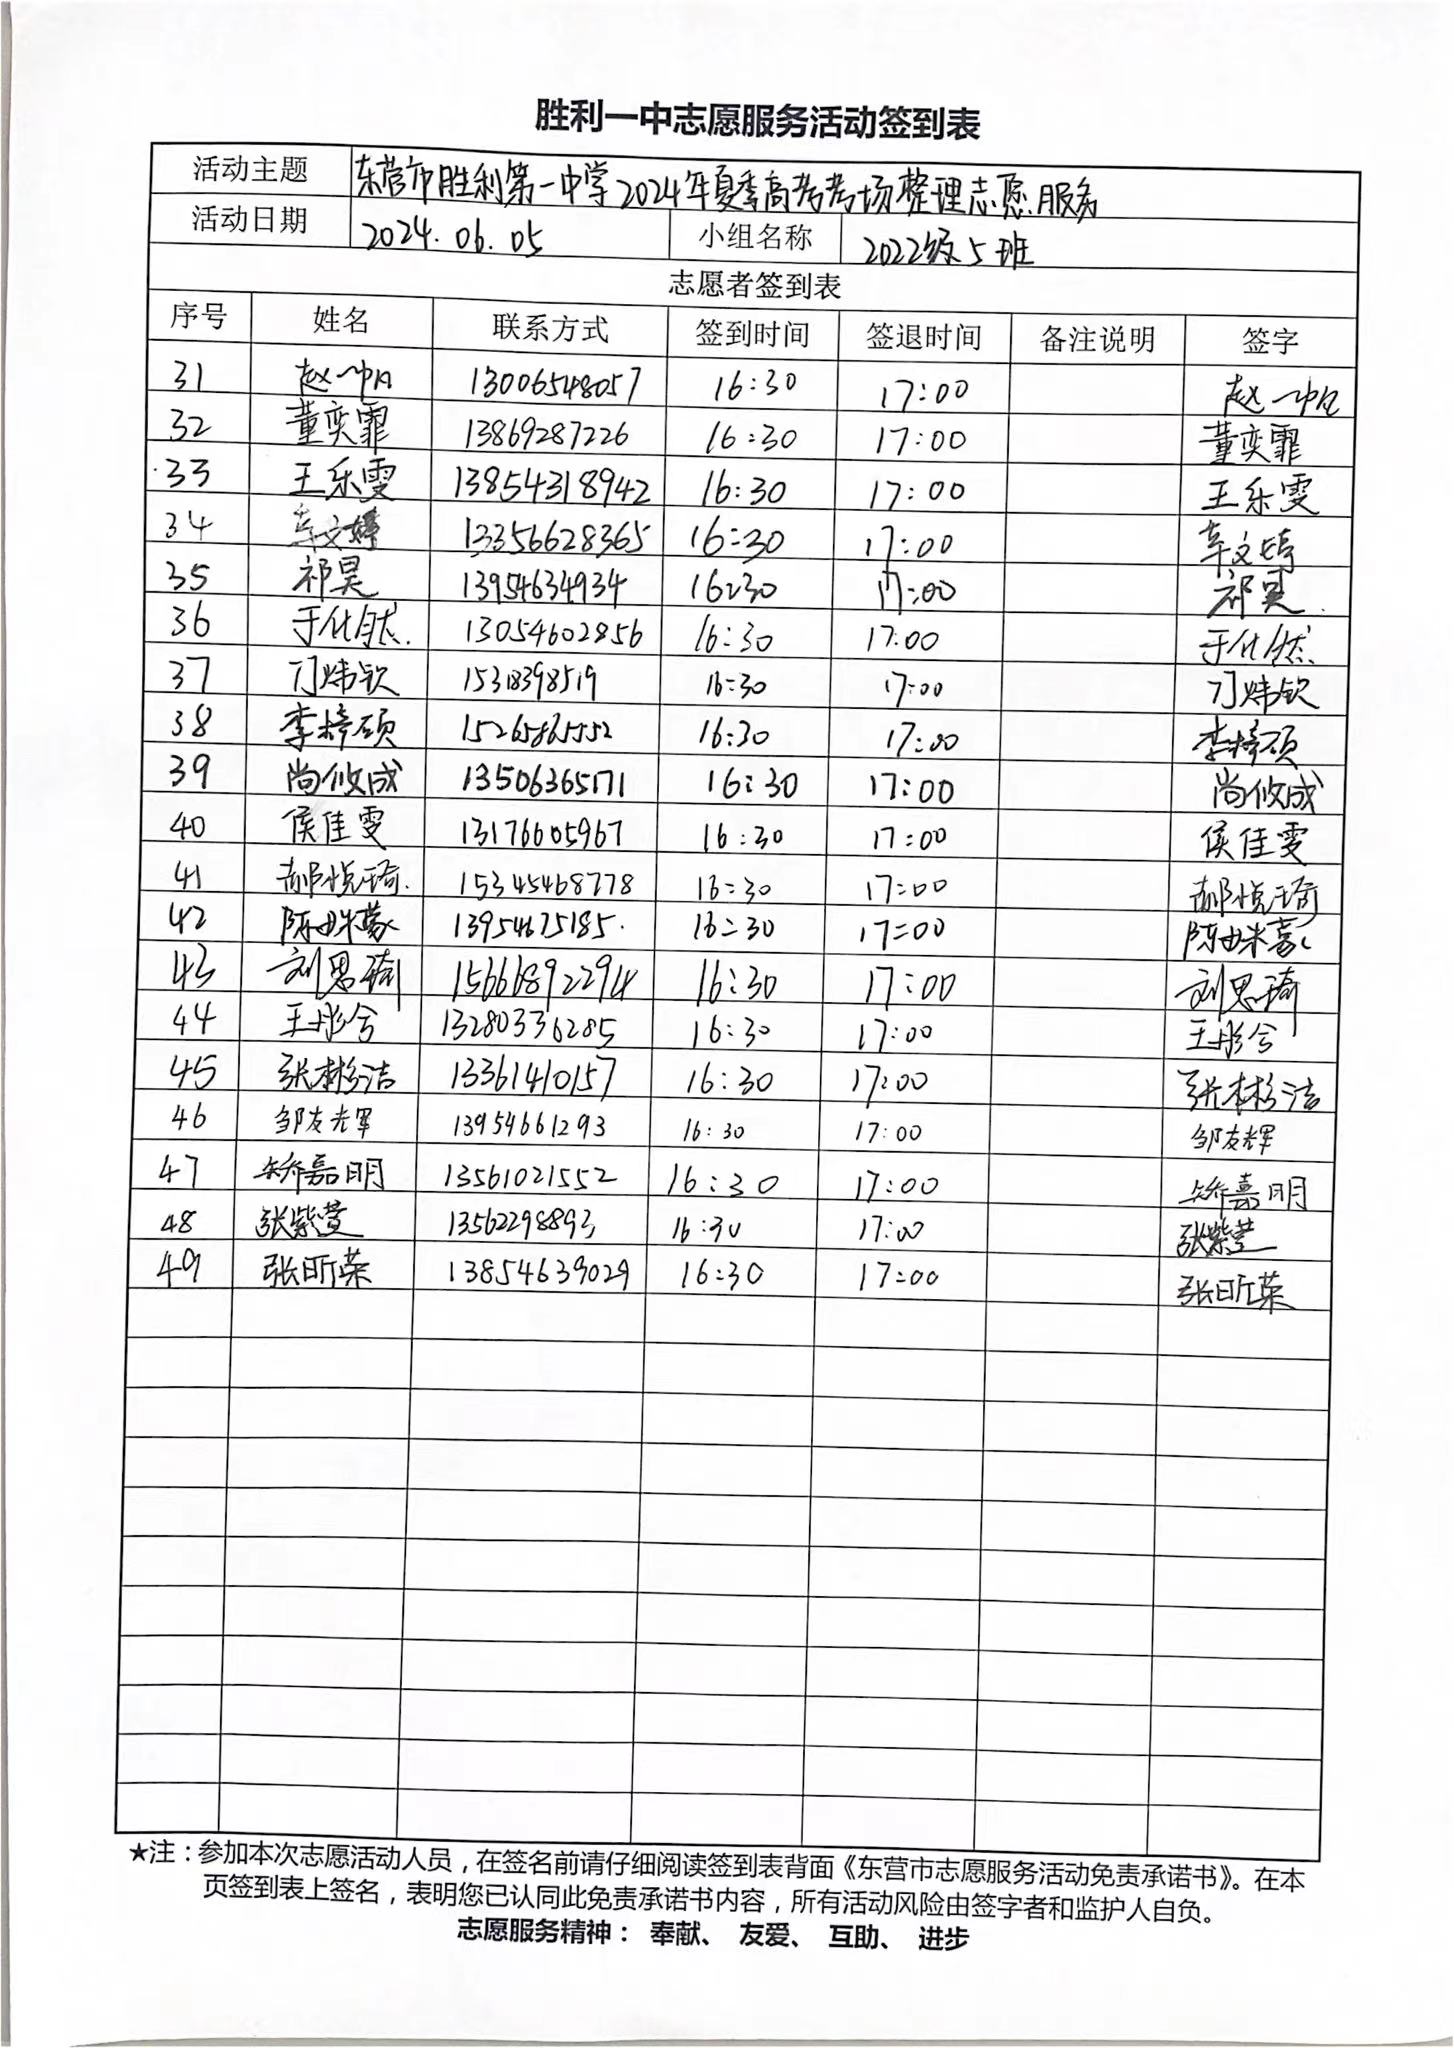 胜利一中志愿服务活动签到表
活动主题 东营市胜利第一中学2024年夏季高考考场整理志愿服务
活动日期 2024.06.05 小组名称 2022级5班
志愿者签到表
序号 姓名 联系方式 签到时间 签退时间 备注说明 签字
31 赵一帆 13006548057 16:30 17:00 赵一帆
32 董奕霏 13869287226 16:30 17:00 董奕霏
33 王乐雯 13854318942 16:30 17:00 王乐雯
34 13356628365 16:30 17:00
35 祁昊 13954634934 16:30 17:00 祁昊
36 于化然 13054602856 16:30 17:00 于化然
37 刁炜钦 15318398519 16:30 17:00 刁炜钦
38 李梓硕 15265865552 16:30 17:00 李梓硕
39 尚攸成 13506365171 16:30 17:00 尚攸成
40 侯佳雯 13176605967 16:30 17:00 侯佳雯
41 郝悦琦 15345468778 16:30 17:00 郝悦琦
42 13954675185 16:30 17:00
43 刘思琦 15666892294 16:30 17:00 刘思琦
44 王彤兮 13280336285 16:30 17:00 王彤兮
45 张彬洁 13361410157 16:30 17:00 张彬洁
46 邹友辉 13954661293 16:30 17:00 邹友辉
47 矫嘉明 13561021552 16:30 17:00 矫嘉明
48 张紫萱 13562298893 16:30 17:00 张紫萱
49 张昕荣 13854639029 16:30 17:00 张昕荣
★注：参加本次志愿活动人员，在签名前请仔细阅读签到表背面《东营市志愿服务活动免责承诺书》。在本
页签到表上签名，表明您已认同此免责承诺书内容，所有活动风险由签字者和监护人自负。
志愿服务精神： 奉献、 友爱、 互助、 进步